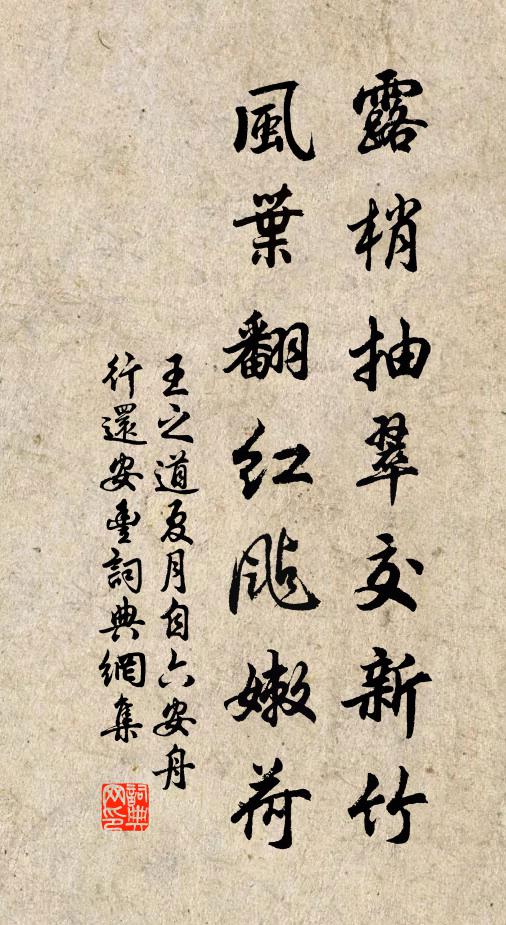 露梢抽翠交新竹
風葉翻紅颭嫩荷
王之道夏月自六安舟
行還安豐詞典網集
詞典
网印